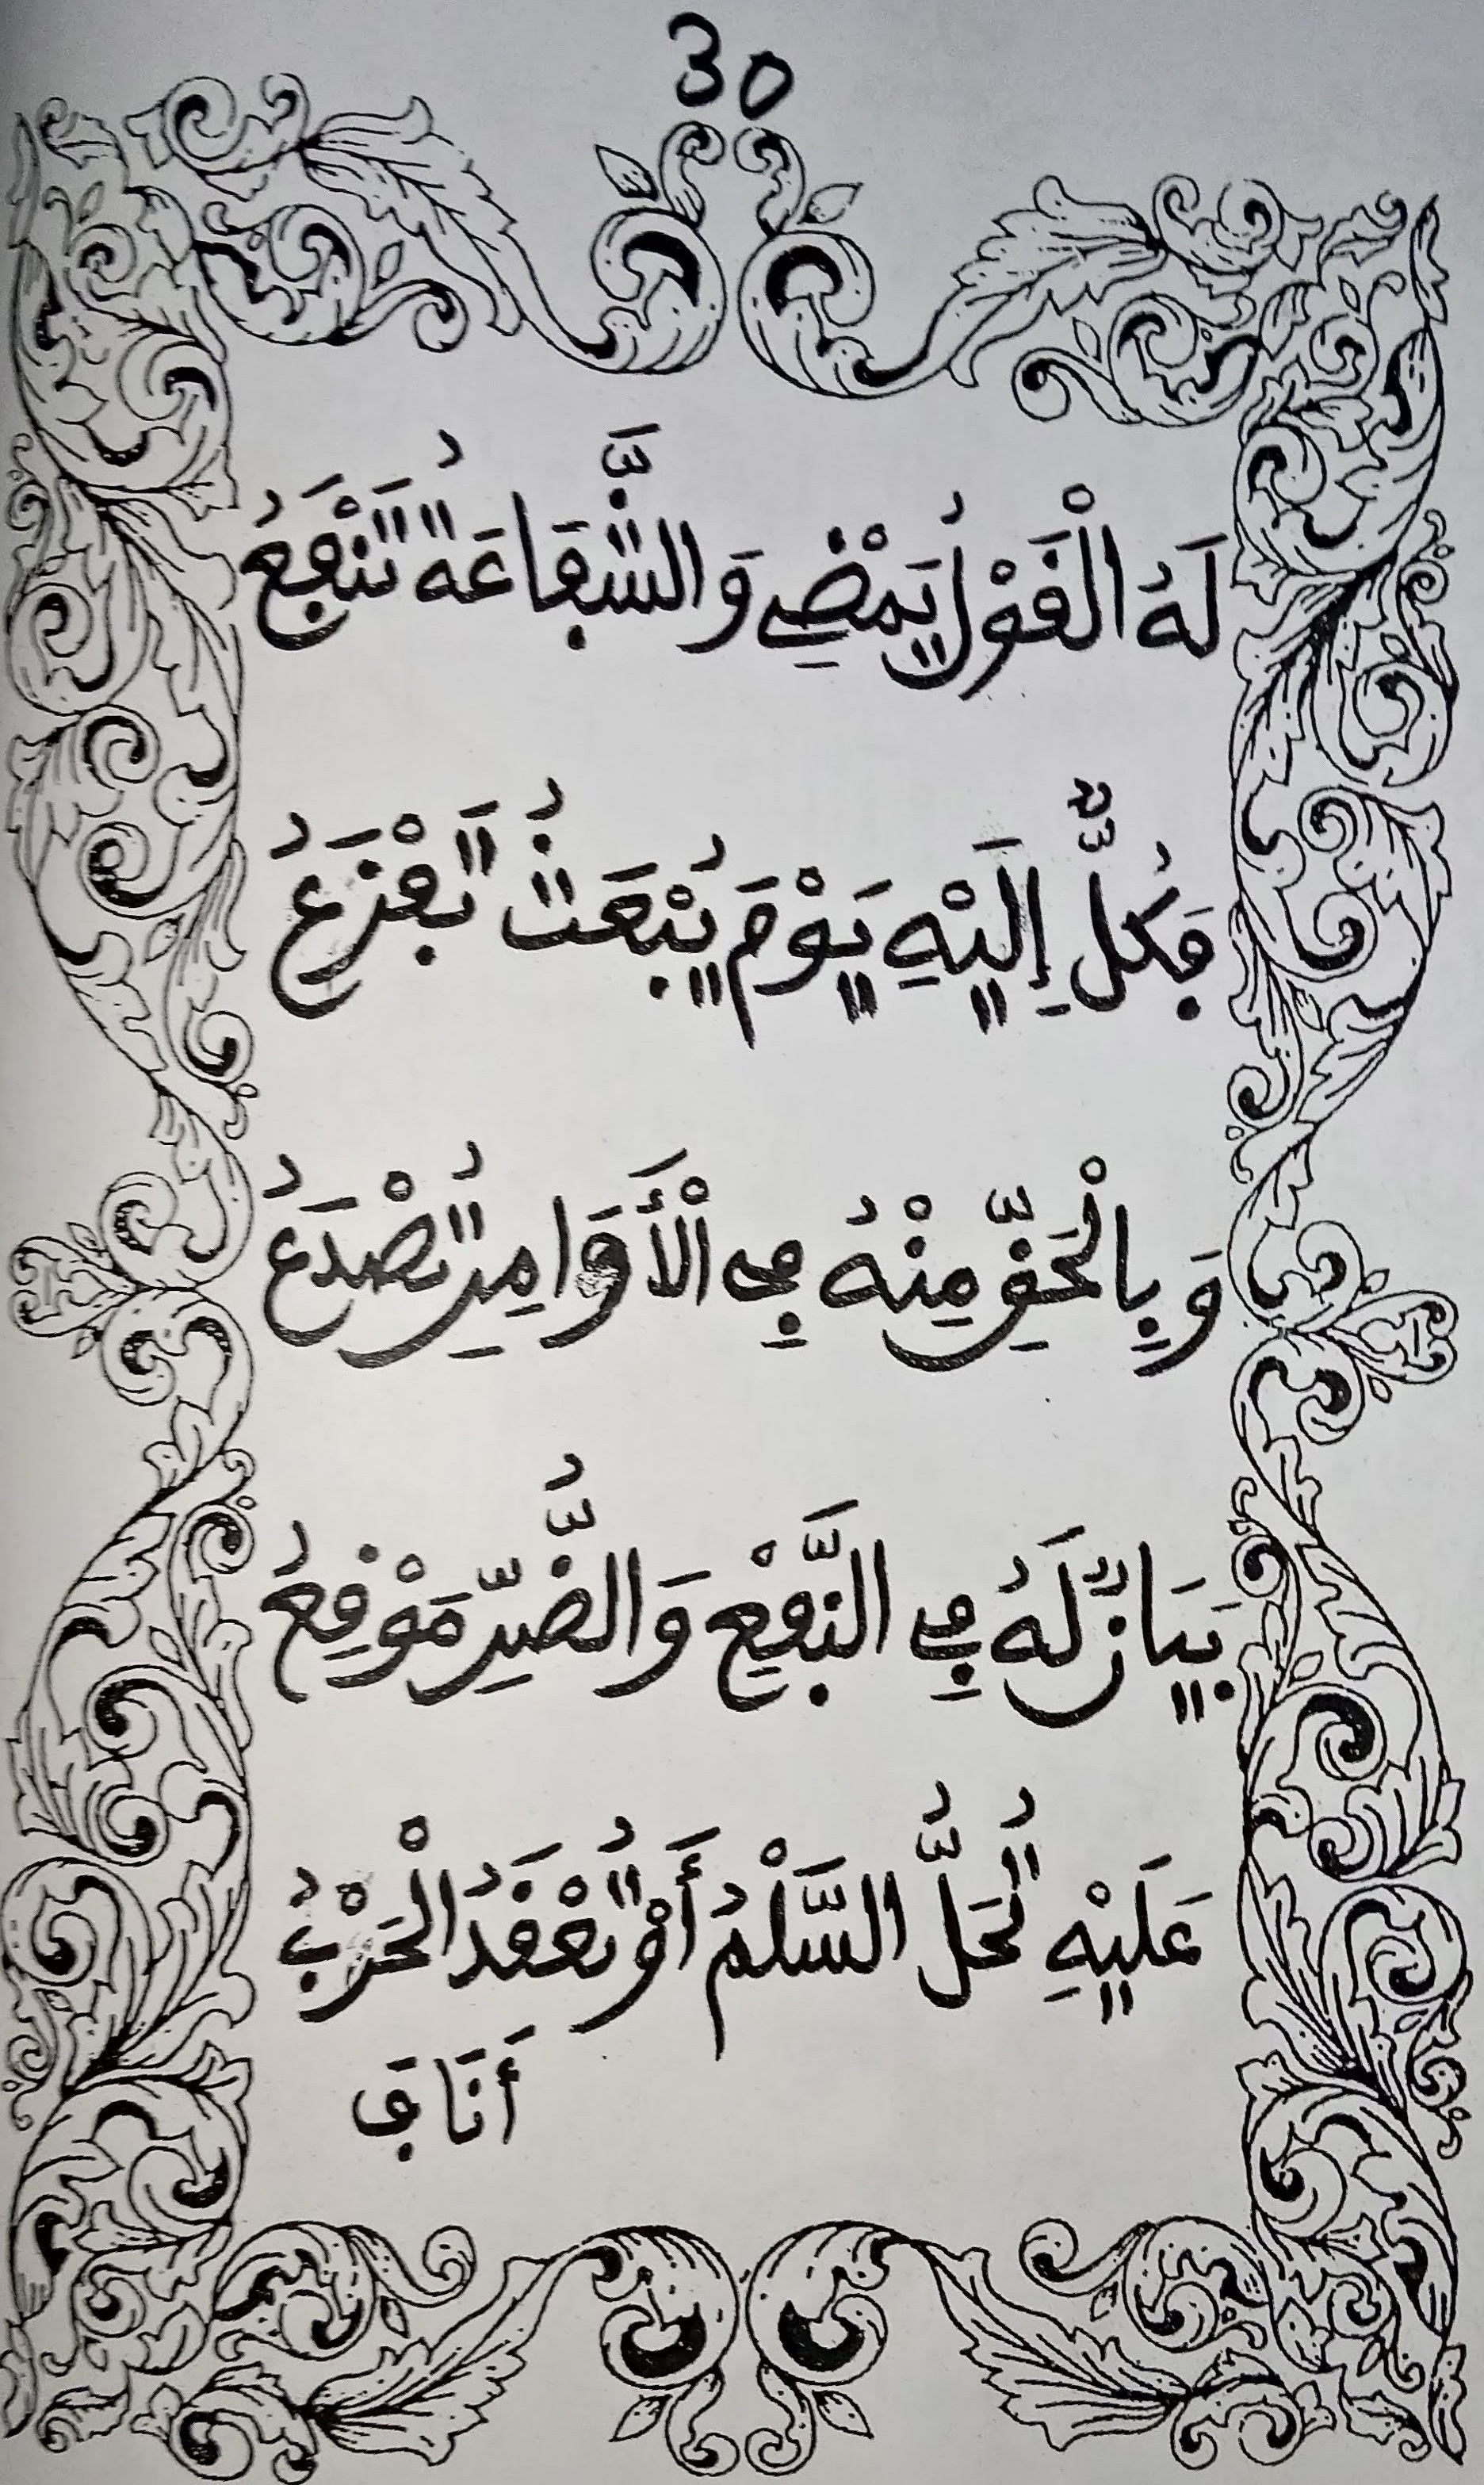 30
لَهُ الْقَوْلُ يَمْضِي وَالشَّفَاعَةُ تَنْفَعُ
فَكُلٌّ إِلَيْهِ يَوْمَ يُبْعَثُ تَفْزَعُ
وَبِالْحَقِّ مِنْهُ فِي الْأَوَامِرِ تُصْدَعُ
بَيَانٌ لَهُ فِي النَّفْعِ وَالضُّرِّ مَوْقِعُ
عَلَيْهِ تُحَلُّ السَّلْمُ أَوْ تُعْقَدُ الْحَرْبُ
أَنَافَ